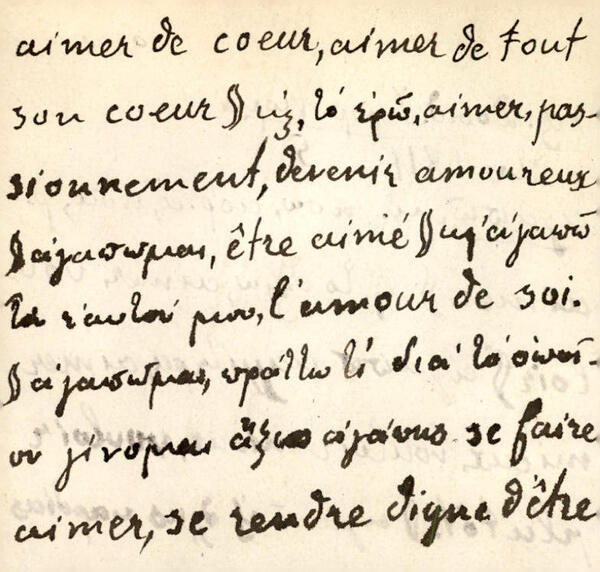 aimer de coeur, aimer de tout
son coeur || κ̓ς, τό ἐρῶ, aimer, pas-
sionnement, devenir amoureux
|| ἀγαπωμαι, être aimé || κ̓ ἀγαπῶ
τα ἑαυτού μου, l'amour de soi.
|| ἀγαπωμαι, πραττω τί διά τό ὁποῖ-
ον γίνομαι ἄξιος ἀγάπης se faire
aimer, se rendre digne d'être